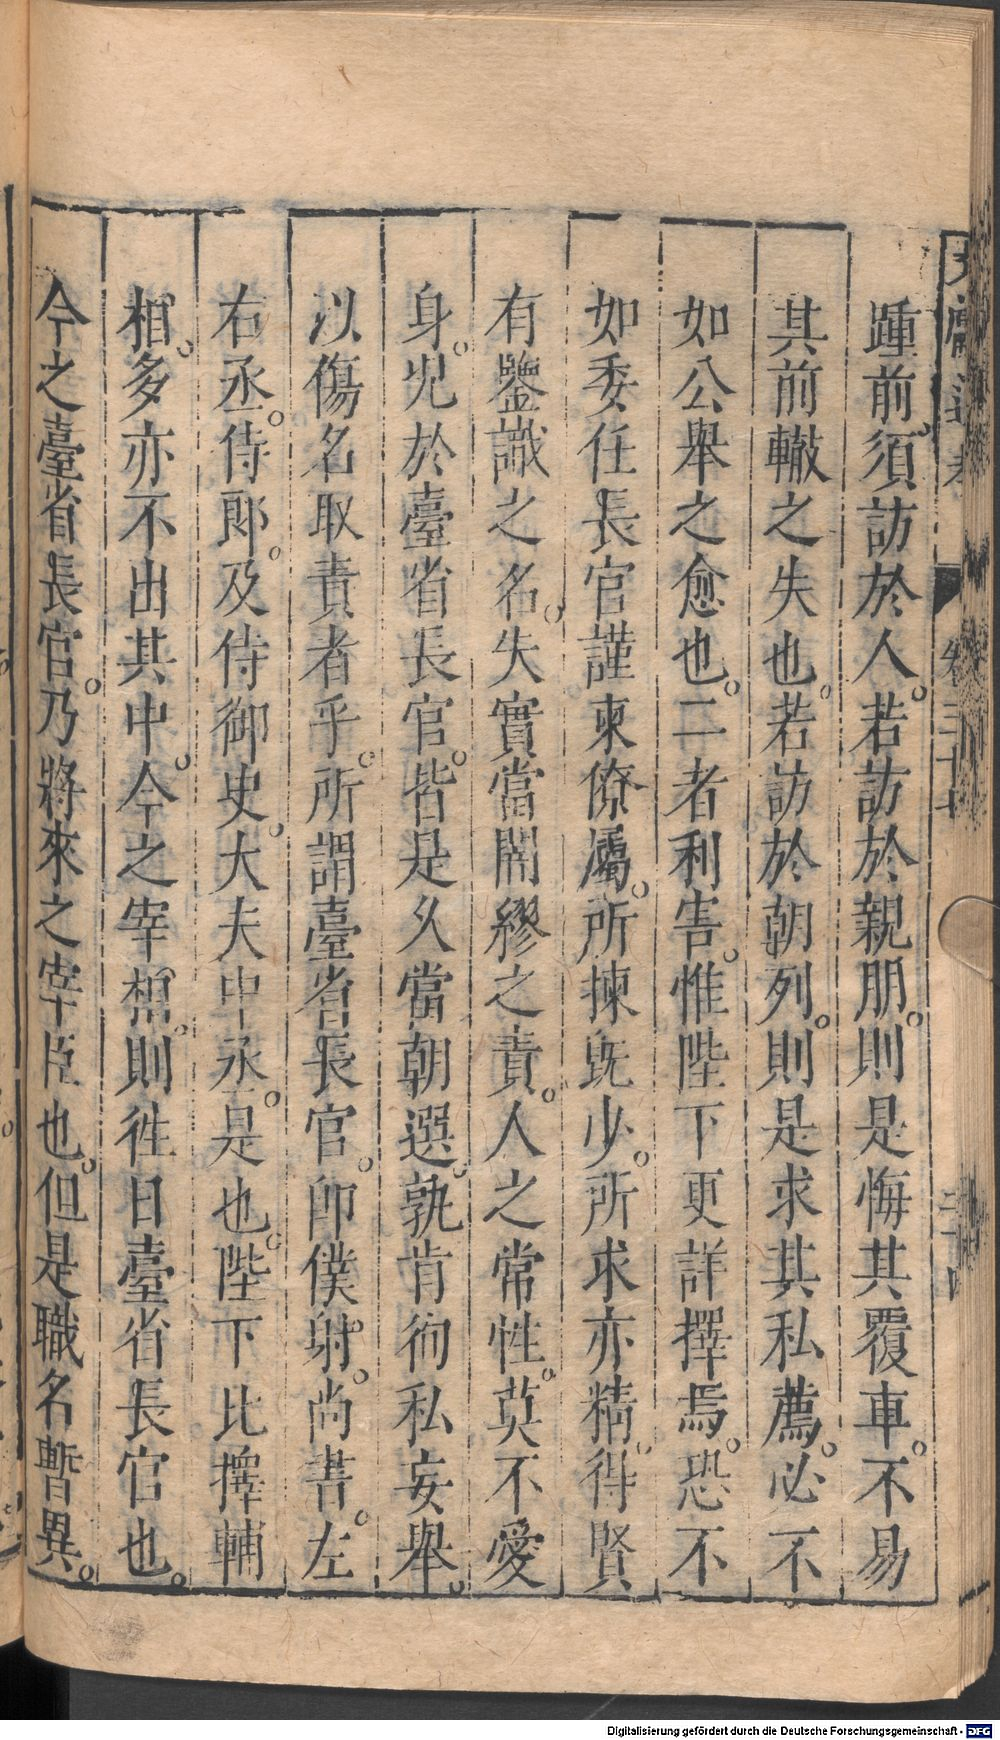 踵前須訪於人若訪於親朋則是悔其覆車不易
其前轍之失也若訪於朝列則是求其私薦必不
如公舉之愈也二者利害惟陛下更詳擇焉恐不
如委任長官謹柬僚屬所揀既少所求亦精得賢
有鑒識之名失實當闇繆之責人之常性莫不愛
身况於臺省長官皆是久當朝選孰肯徇私妄舉
以傷名取責者乎所謂臺省長官卽僕射尚書左
右丞侍郎及侍御史大夫中丞是也陛下比擇輔
相多亦不出其中今之宰相則徃日臺省長官也
今之臺省長官乃將來之宰臣也但是職名暫異
Digitalisierung gefördert durch die Deutsche Forschungsgemeinschaft - DFG